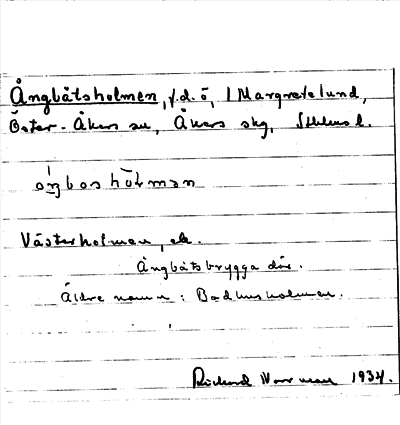 Ångbåtsholmen, f.d. ö, i Margretelund,
Öster-Åkers sn, Åkers skg, Sthlms l.
Västerholmen, ek.
Ångbåtsbrygga där.
Äldre namn: Badhusholmen.
Rickard Norrman 1934.